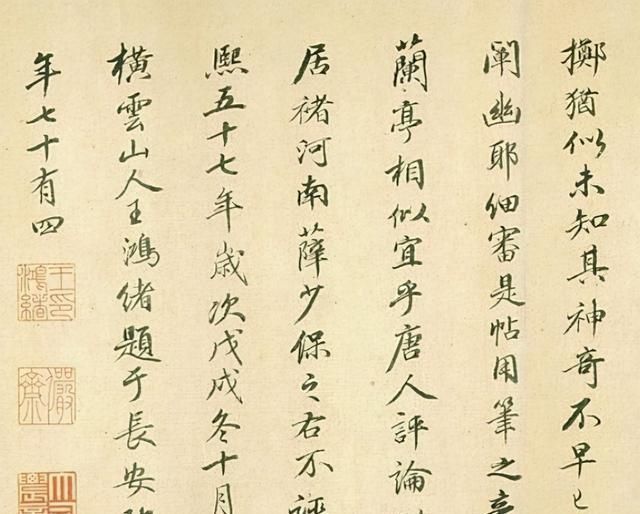 擲猶似未知其神奇不早已
闡幽耶細審是帖用筆之
蘭亭相似宜乎唐人評論
居褚河南薛少保之右不誣
熙五十七年歲次戊戌冬十月
橫雲山人王鴻緒題于長安
年七十有四
王印鴻緒
儼齋